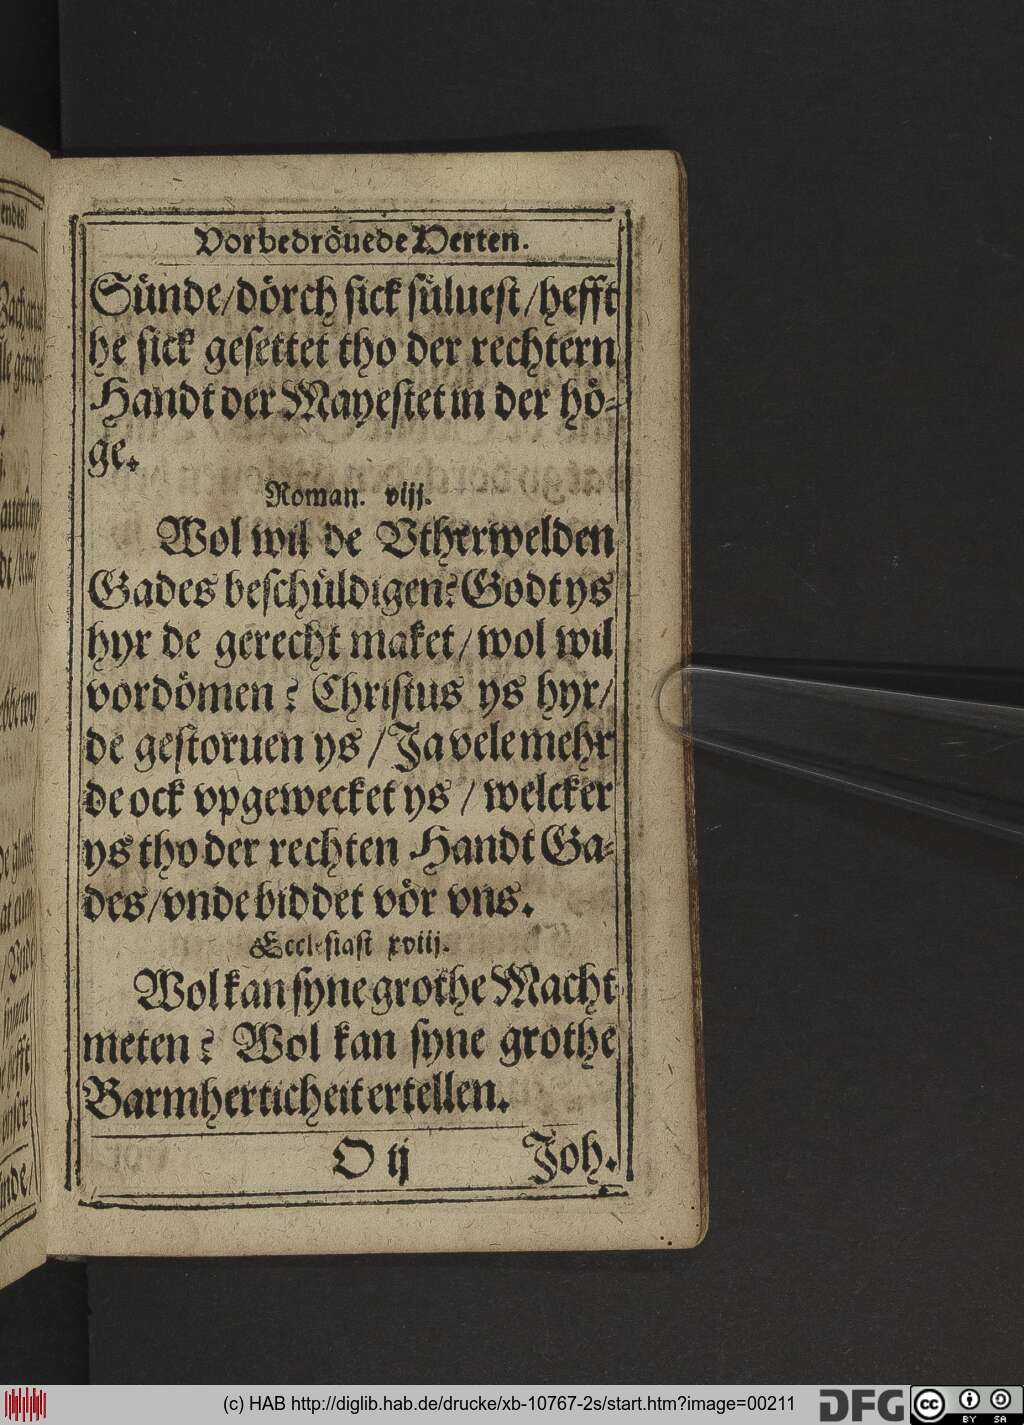 Vorbedröuede Herten.
Sünde/dörch sick süluest/hefft
he sick gesettet tho der rechtern
Handt der Mayestet in der hö-
ge.
Roman. viij.
Wol wil de Vtherwelden
Gades beschüldigen? Godt ys
hyr de gerecht maket/wol wil
vordömen? Christus ys hyr/
de gestoruen ys/Ja vele mehr
de ock vpgewecket ys/welcker
ys tho der rechten Handt Ga-
des/vnde biddet vör vns.
Ecclesiast xviij.
Wol kan syne grothe Macht
meten? Wol kan syne grothe
Barmherticheit ertellen.
O ij Joh.
(c) HAB http://diglib.hab.de/drucke/xb-10767-2s/start.htm?image=00211
DFG
cc
BY SA